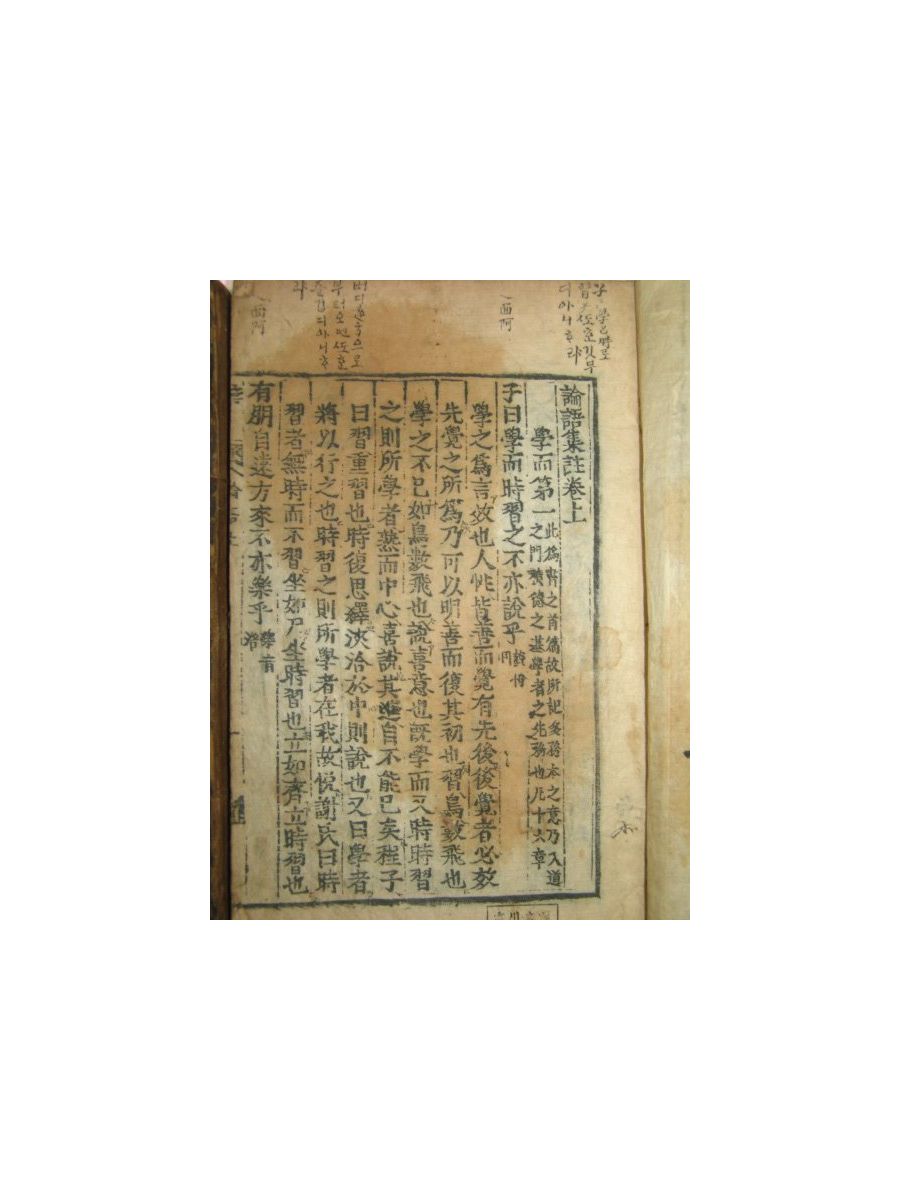 論語集註卷上
學而第一 此爲書之首篇故所記多務本之意乃入道
之門積德之基學者之先務也凡十六章
子曰學而時習之不亦說乎 說悅
同
學之爲言效也人性皆善而覺有先後後覺者必效
先覺之所爲乃可以明善而復其初也習鳥數飛也
學之不已如鳥數飛也說喜意也旣學而又時時習
之則所學者熟而中心喜說其進自不能已矣程子
曰習重習也時復思繹浹洽於中則說也又曰學者
將以行之也時習之則所學者在我故悅謝氏曰時
習者無時而不習坐如尸坐時習也立如齊立時習也
有朋自遠方來不亦樂乎 樂音
洛
面阿
버디遠方으로
부터오면또
즐겁디아니
랴
面阿